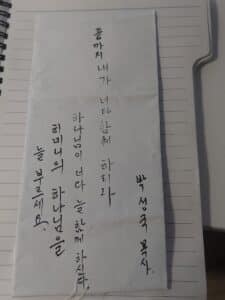 끝까지 내가 너와 함께 하리라
하나님이 너와 늘 함께 하신다.
하나님을
늘 부르세요.
박성국 목사.